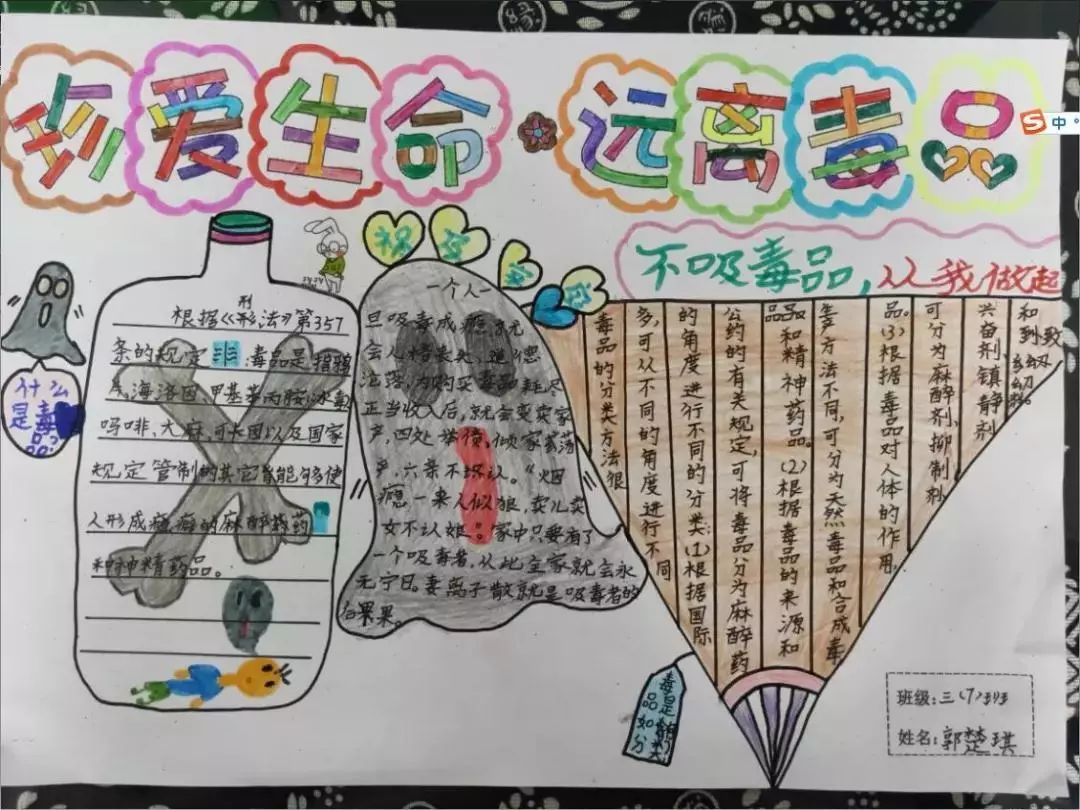 珍爱生命·远离毒品
不吸毒品,从我做起
什么
是毒
品?
刑
根据《形法》第357
条的规定 :毒品是指鸦
片,海洛因,甲基苯丙胺,冰毒
吗啡、大麻,可卡因以及国家
规定管制的其它 能够使
人形成瘾癖的麻醉 药
和神精药品。
祸 家
一个人一
旦吸毒成瘾,就
会人格丧失,道德
沦落,为购买毒品耗尽
正当收入后,就会变卖家
产,四处举债,倾家荡
产,六亲不认。“烟
瘾一来人似狼,卖儿卖
女不认娘。”家中只要有了
一个吸毒者,从此全家就会永
无宁日。妻离子散就是吸毒者的
后果。
毒品的分类方法很
多,可从不同的角度进行不同
的角度进行不同的分类:(1)根据国际
公约的有关规定,可将毒品分为麻醉药
品和精神药品。(2)根据毒品的来源和
生产方法不同,可分为天然毒品和合成毒
品。(3)根据毒品对人体的作用,
可分为麻醉剂,抑制剂
兴奋剂,镇静剂
和 致幻剂。
毒品
是如
分
班级:三(7)班
姓名:郭楚琪
中